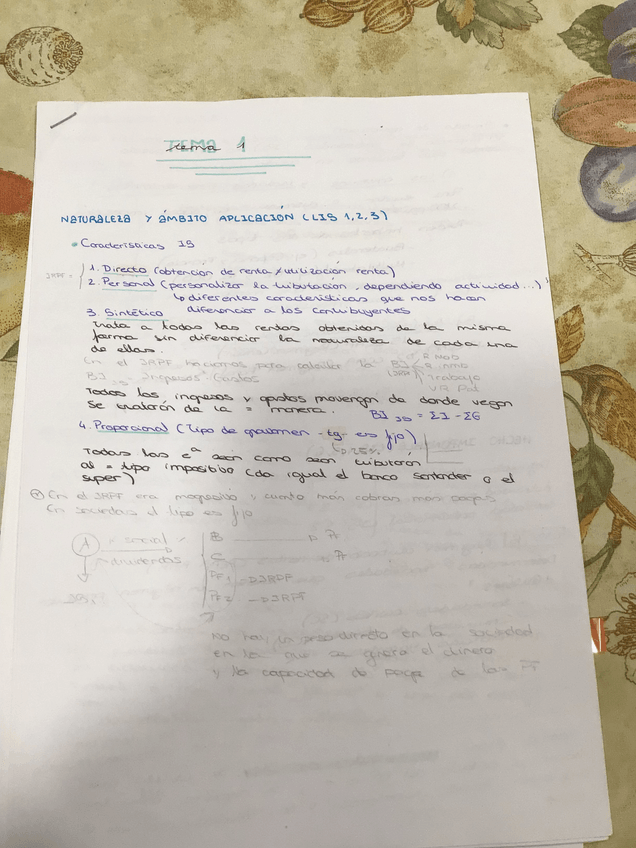 Tema 1
NATURALEZA Y ÁMBITO APLICACIÓN (LIS 1, 2, 3)
• Características IS
IRPF = 1. Directo (obtención de renta y utilización renta)
2. Personal (personalizar la tributación, dependiendo actividad...)
↳ diferentes características que nos hacen
diferenciar a los contribuyentes
3. Sintético
trata a todas las rentas obtenidas de la misma
forma sin diferenciar la naturaleza de cada una
de ellas.
En el IRPF hacíamos para calcular la BI
R Mob
R Inmob
(IRPF) Trabajo
BI IS = Ingresos - Gastos
Todos los ingresos y gastos provengan de donde vegan
se tratarán de la = manera. BI IS = ΣI - ΣG
4. Proporcional (Tipo de gravamen - tg - es fijo)
↳ 25%
Todas las eª sean como sean tributarán
al = tipo impositivo (da igual el banco santander o el
super)
En el IRPF era progresivo y cuanto más cobras más pagas
En sociedades el tipo es fijo
A social B
dividendos C
PF1 → IRPF
PF2 → IRPF
No hay un en la sociedad
en la que se genera el dinero
y la capacidad de pago de las